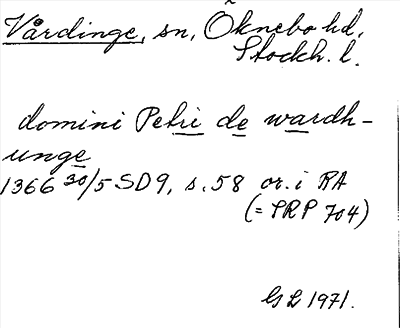 Vårdinge, sn, Öknebo hd,
Stockh. l.
domini Petri de wardh-
unge
1366 30/5 SD9, s. 58 or. i RA
(= SRP 704)
GL 1971.